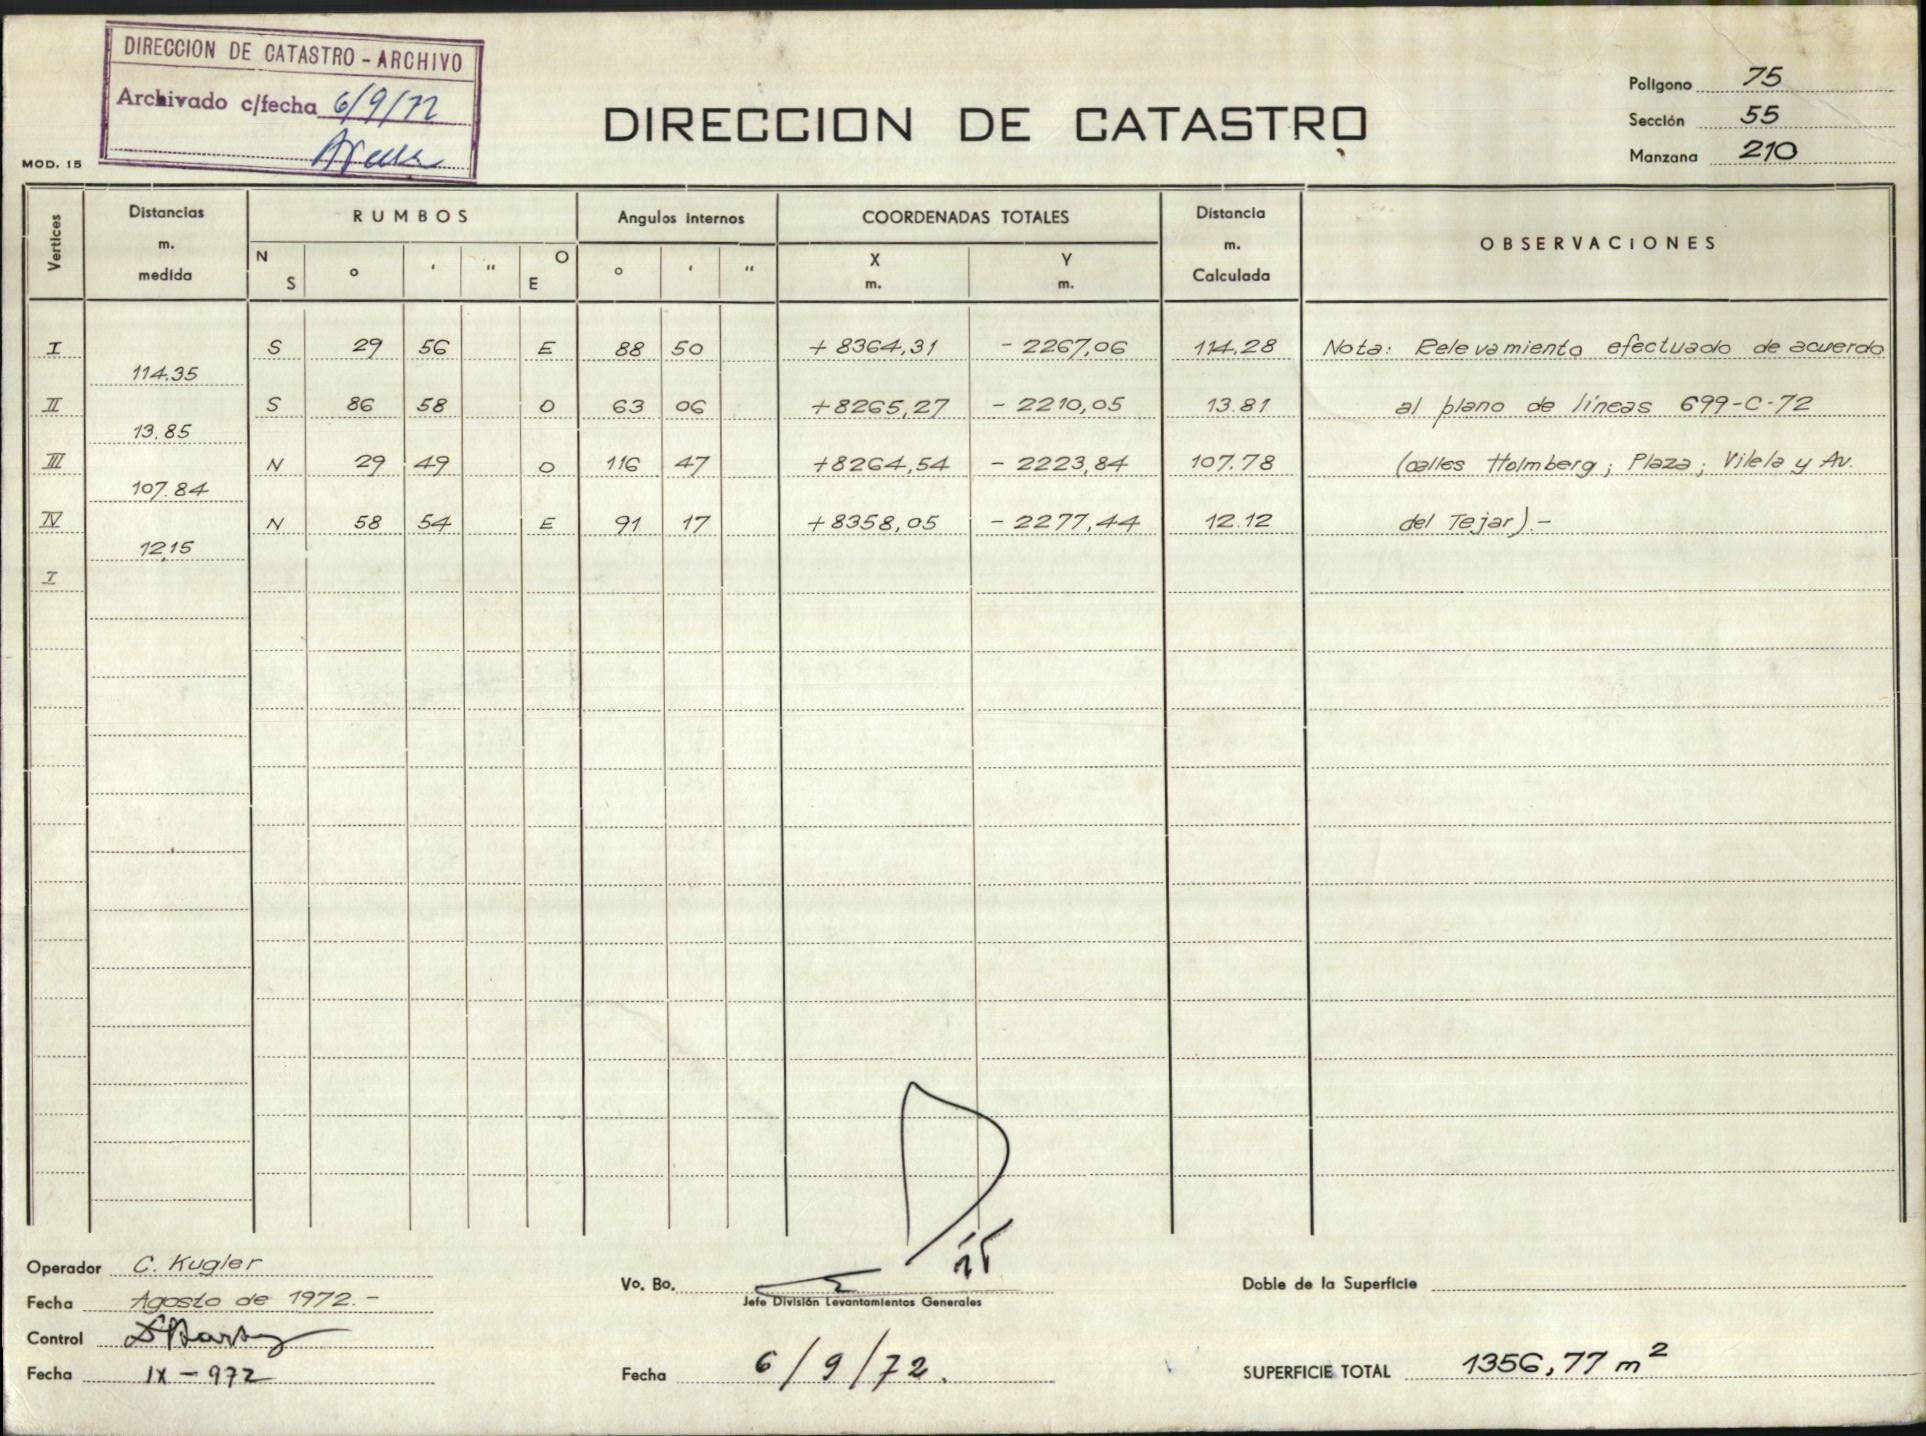 DIRECCION DE CATASTRO - ARCHIVO
Archivado c/fecha 6/9/72
MOD. 15
DIRECCION DE CATASTRO
Polígono 75
Sección 55
Manzana 210
Vertices Distancias m. medida RUMBOS Angulos internos COORDENADAS TOTALES Distancia m. Calculada OBSERVACIONES
N S ° ' " O E ° ' " X m. Y m.
I S 29 56 E 88 50 +8364,31 -2267,06 114,28 Nota: Relevamiento efectuado de acuerdo
114.35
II S 86 58 O 63 06 +8265,27 -2210,05 13.81 al plano de líneas 699-C-72
13.85
III N 29 49 O 116 47 +8264,54 -2223,84 107.78 (calles Holmberg; Plaza; Vilela y Av.
107.84
IV N 58 54 E 91 17 +8358,05 -2277,44 12.12 del Tejar).-
12,15
I
Operador C. Kugler
Fecha Agosto de 1972.-
Control
Fecha IX-972
Vo. Bo.
Jefe División Levantamientos Generales
Fecha 6/9/72.
Doble de la Superficie
SUPERFICIE TOTAL 1356,77 m²